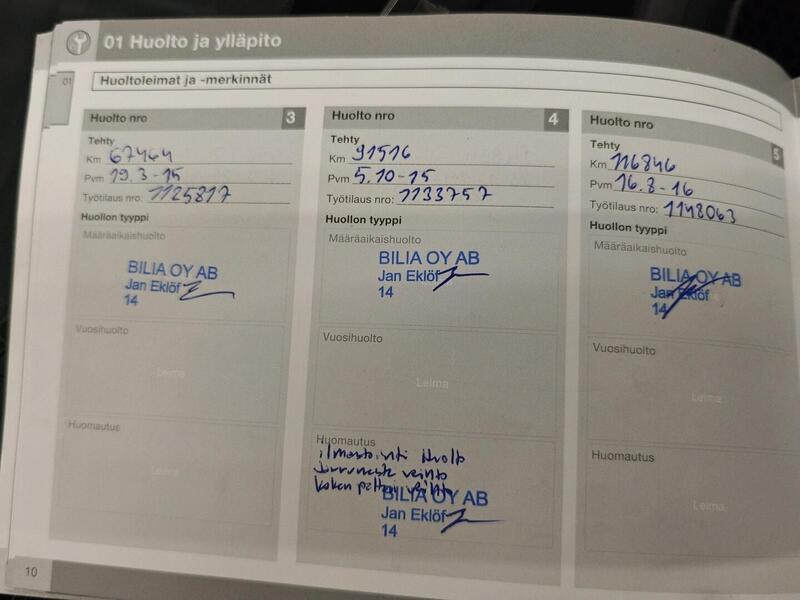 01 Huolto ja ylläpito
01
Huoltoleimat ja -merkinnät
Huolto nro 3
Tehty
Km 67464
Pvm 19.3-15
Työtilaus nro: 1125817
Huollon tyyppi
Määräaikaishuolto
BILIA OY AB
Jan Eklöf
14
Vuosihuolto
Leima
Huomautus
Leima
Huolto nro 4
Tehty
Km 91516
Pvm 5.10-15
Työtilaus nro: 1133757
Huollon tyyppi
Määräaikaishuolto
BILIA OY AB
Jan Eklöf
14
Vuosihuolto
Leima
Huomautus
ilmastointi Huolto
Jarruneste vaihto
BILIA OY AB
Jan Eklöf
14
Huolto nro 5
Tehty
Km 116846
Pvm 16.8-16
Työtilaus nro: 1148063
Huollon tyyppi
Määräaikaishuolto
BILIA OY AB
Jan Eklöf
14
Vuosihuolto
Leima
Huomautus
Leima
10